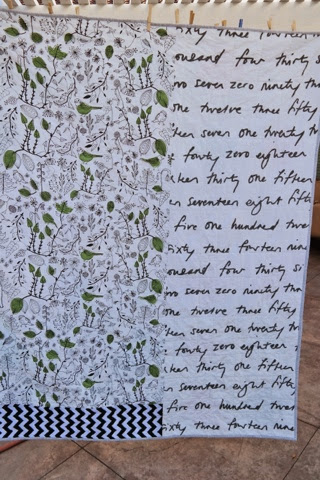 sixty three fourteen
ousand four thirty s
wo seven zero ninety tha
one twelve three fifty
ken seven one twenty t
forty zero eighteen
ken thirty one fifteen
n seventeen eight fifth
five one hundred twel
sixty three fourteen nine
ousand four thirty si
wo seven zero ninety tha
one twelve three fifty
ken seven one twenty tw
forty zero eighteen
ken thirty one fifteen
n seventeen eight fift
five one hundred twel
sixty three fourteen nine